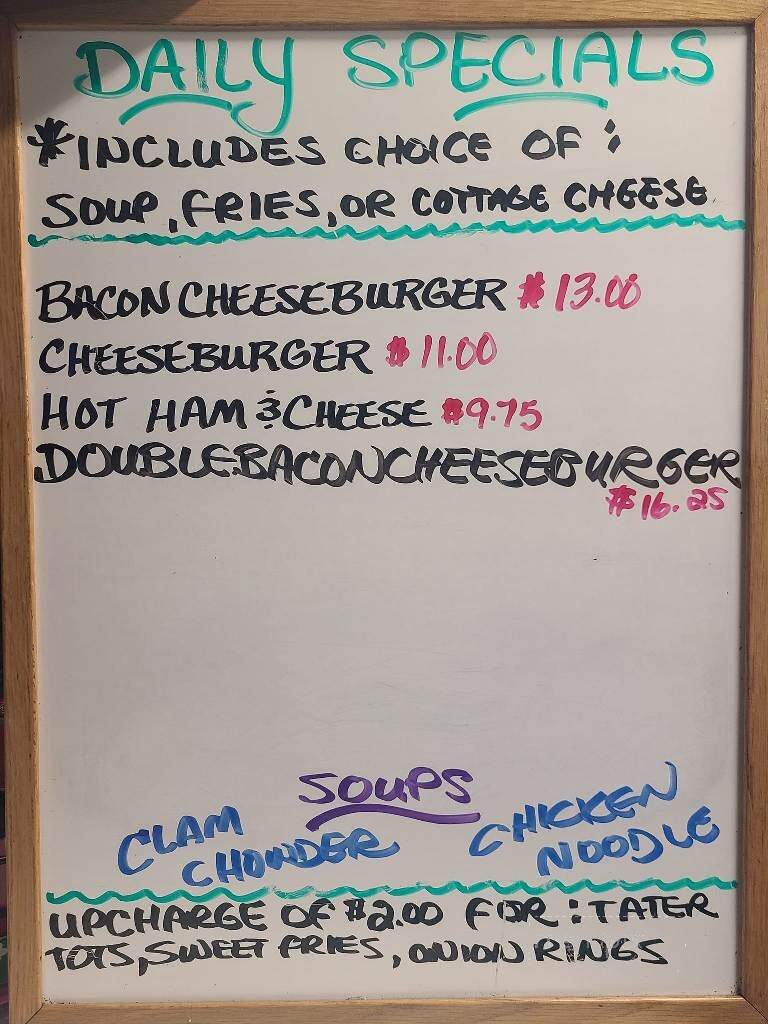 DAILY SPECIALS
*INCLUDES CHOICE OF:
SOUP, FRIES, OR COTTAGE CHEESE
BACON CHEESEBURGER $13.00
CHEESEBURGER $11.00
HOT HAM & CHEESE $9.75
DOUBLE BACON CHEESEBURGER
$16.25
SOUPS
CLAM CHOWDER
CHICKEN NOODLE
UPCHARGE OF $2.00 FOR: TATER
TOTS, SWEET FRIES, ONION RINGS